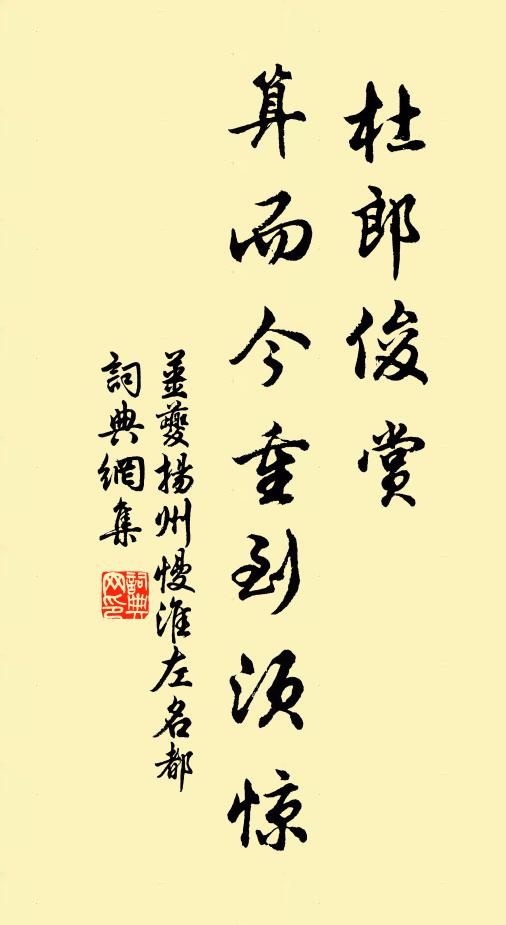 杜郎俊赏
算而今重到须惊
姜夔揚州慢淮左名都
詞典網集
詞典网印